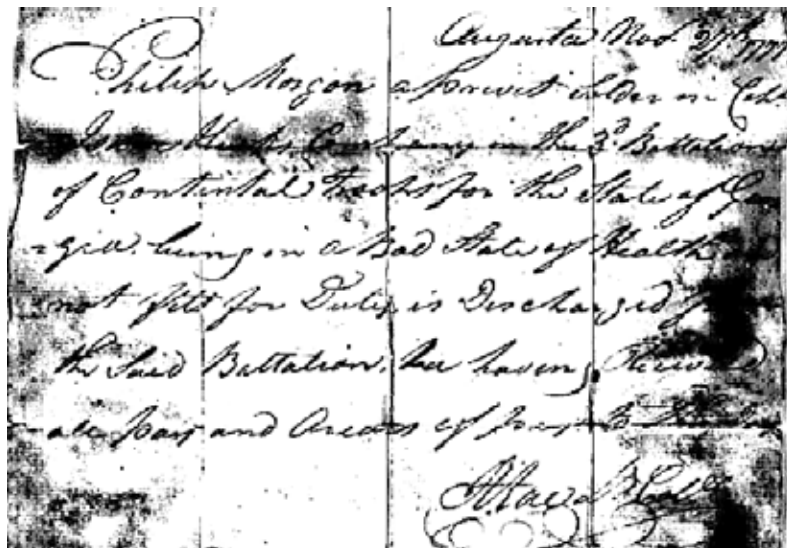 Augusta Nov. 27th 1777
Philip Morgan a privet solder in Capt.
Isaac Hicks Company in the 3d Battalion
of Contintal Troops for the State of Geor
-gia. being in a Bad State of Health
not fitt for Duty is Discharged from
the Said Battalion, he having Received
all pay and Arears of pay to this day